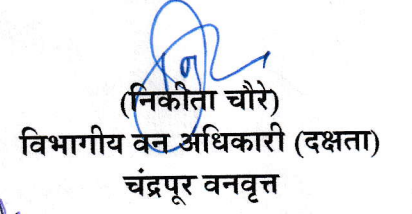 (निकीता चौरे)
विभागीय वन अधिकारी (दक्षता)
चंद्रपूर वनवृत्त